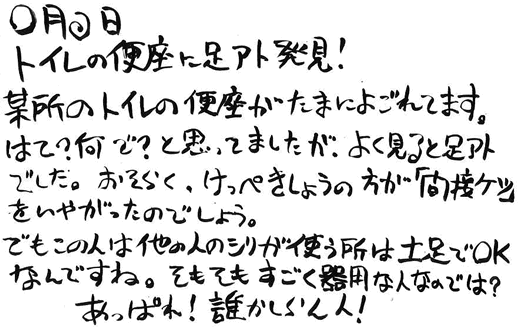 〇月〇日
トイレの便座に足アト発見!
某所のトイレの便座がたまによごれてます。
はて?何で?と思ってましたが、よく見ると足アト
でした。おそらく、けっぺきしょうの方が「間接ケツ」
をいやがったのでしょう。
でもこの人は他の人のシリが使う所は土足でOK
なんですね。そもそもすごく器用な人なのでは?
あっぱれ!誰かしらん人!